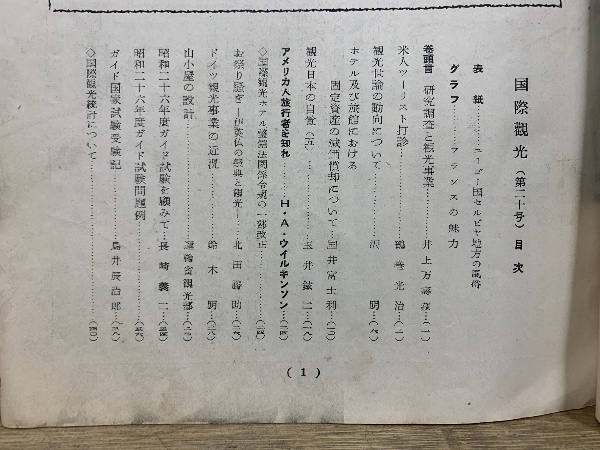 国際観光(第二十号)目次
表紙………ユーゴー国セルビヤ地方の風俗
グラフ………フランスの魅力
巻頭言 研究調査と観光事業……井上万寿蔵…(一)
米人ツーリスト打診……鶴巻光治…(二)
観光世論の動向について……沢 開…(六)
ホテル及び旅館における
固定資産の減価償却について…国井富士利…(一〇)
観光日本の自覚(五)……玉井鉱二…(一八)
アメリカ人旅行者を知れ………H・A・ウイルキンソン…(二四)
◇国際観光ホテル整備法関係令規の一部改正…………(二四)
お祭り騒ぎ―伊英仏の祭典と観光―…北田勝助…(二六)
ドイツ観光事業の近況……鈴木 開…(二八)
山小屋の設計……運輸省観光部…(三〇)
昭和二十六年度ガイド試験を顧みて…長崎義一…(三四)
昭和二十六年度ガイド試験問題例………(三六)
ガイド国家試験受験記……鳥井辰治郎…(三八)
◇国際観光統計について………(四〇)
(1)